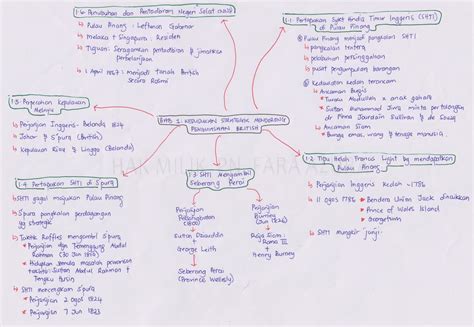 1.6 Penubuhan dan Pentadbiran Negeri Selat (NNS)
↳ Pulau Pinang : Leftenan Gabenor
↳ Melaka & Singapura : Residen
↳ Tujuan: Seragamkan pentadbiran & jimatkan
perbelanjaan
↳ 1 April 1867 : menjadi tanah British
secara Rasmi
1.1 Pertapakan Syket Hindia Timur Inggeris (SHTI)
di Pulau Pinang
① Pulau Pinang menjadi pangkalan SHTI
↳ pangkalan tentera
↳ pelabuhan persinggahan
↳ pusat pengumpulan barangan
② Kedaulatan Kedah terancam
↳ Ancaman Bugis
↳ Tunku Abdullah & anak gahara
↳ Sultan Muhammad Jiwa minta pertolongan
dr Prima Jourdain Sullivan & de Souza
↳ Ancaman Siam
↳ Bunga emas, wang & tenaga manusia.
1.5 Pemecahan Kepulauan
Melayu
↳ Perjanjian Inggeris-Belanda 1824
↳ Johor & S'pura (British)
↳ Kepulauan Riau & Lingga (Belanda)
BAB 1: KEDUDUKAN STRATEGIK MENDORONG
PENGUASAAN BRITISH
HAK MILIK PN. FARA
1.4 Pertapakan SHTI di S'pura
↳ SHTI gagal majukan Pulau Pinang
↳ S'pura pangkalan perdagangan
yg strategik
↳ Taktik Raffles mengambil S'pura
↳ Perjanjian dgn Temenggung Abdul
Rahman (30 Jan 1819)
↳ Hidupkan semula masalah pewarisan
takhta: Sultan Abdul Rahman &
Tengku Husin
↳ SHTI mencengkam S'pura
↳ Perjanjian 2 Ogos 1824
↳ Perjanjian 7 Jun 1823
1.3 SHTI Mengambil
Seberang Perai
Perjanjian
Persahabatan
(1800)
Sultan Dziauddin
&
George Leith
Seberang Perai
(Province Wellesly)
Perjanjian
Burney
(Jun 1826)
Raja Siam:
Rama III
&
Henry Burney
1.2 Tipu Helah Francis Light bg mendapatkan
Pulau Pinang
↳ Perjanjian Inggeris Kedah 1786
↳ 11 Ogos 1786 → Bendera Union Jack dinaikkan
→ Prince of Wales Island
→ Georgetown
↳ SHTI mungkir janji